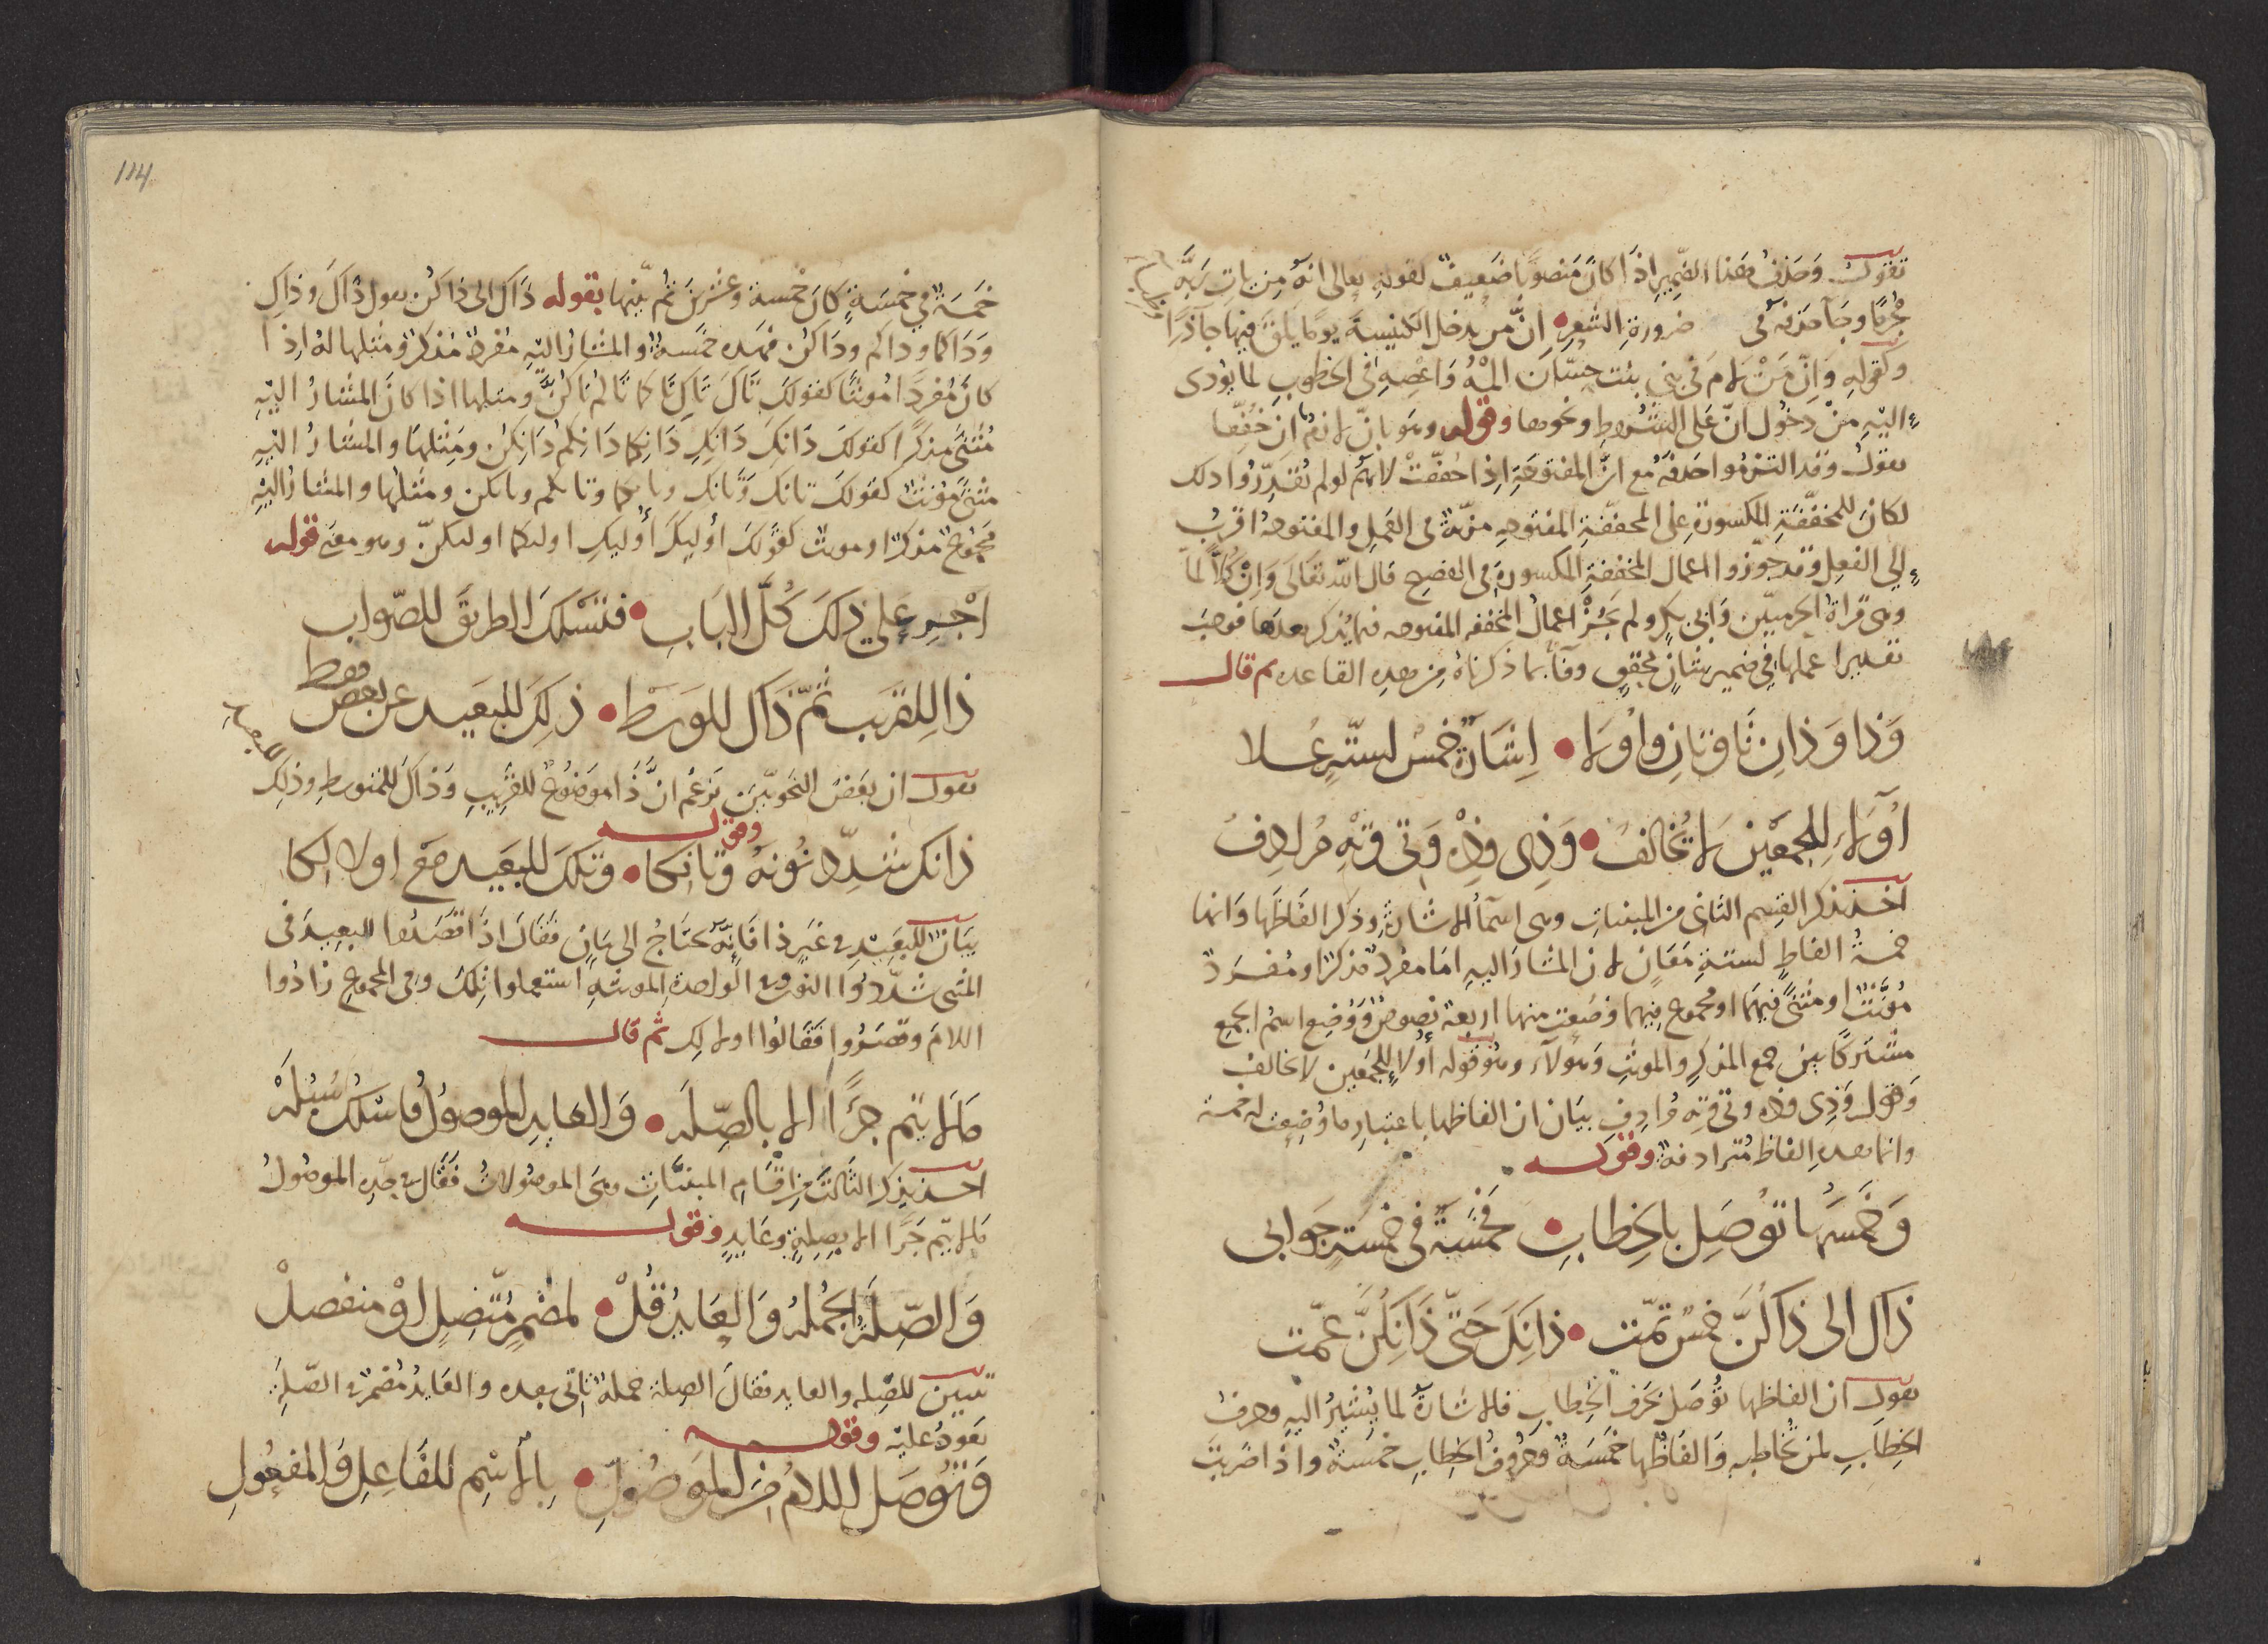 تقول وحذف هذا الضمير اذا كان منصوبا ضعيف لقوله تعالى انه من يات ربه
مجرما وجا حذفه فى ضرورة الشعر ان من يدخل الكنيسة يوما يلق فيها جآذرا
وكقوله وان من لام فى بنى بنت حسان المه واعصه فى الخطوب لما يودى
اليه من دخول ان على الشروط ونحوها وقوله وهو بان لا نعم ان خففا
يقول وقد التزموا حذفه مع ان المفتوحة اذا خففت لانهم لو لم يقدروا ذلك
لكان للمخففة المكسورة على المخففة المفتوحه مزية فى العمل والمفتوحة اقرب
الى الفعل وقد جوزوا اعمال المخففة المكسورة فى الفصيح قال الله تعالى وان كلا لما
وهى قراة الحرميين وابى بكر ولم يجز اعمال المخففه المفتوحه فيما يذكر بعدها فوجب
تقديرا عملها فى ضمير شان محقق وفا بما ذكرناه من هذه القاعده ثم قال
وذا وذان تا وتان واولا اشارة خمس لستة علا
اولاء للجمعين لا تخالف وذى وذه وتى وته مرادف
اخذ يذكر القسم الثانى من المبنيات وهى اسما الاشارة وذكر الفاظها وانها
خمسة الفاظ لستة معان لان المشار اليه اما مفرد مذكر او مفرد
مونث او مثنى فيهما او مجموع فيهما وضعت منها اربعة نصوص ووضع اسم الجمع
مشتركا بين جمع المذكر والمونث وهولاء وهو قوله اولاء للجمعين لا تخالف
وقوله وذى وذه وتى وته مرادف بيان ان الفاظها باعتبار ما وضعت له خمسة
وانما هذه الفاظ مترادفة وقوله
وخمسها توصل بالخطاب فخمسة فى خمسة جوابى
ذاك الى ذاكن خمس تمت ذانك حتى ذانكن عمت
يقول ان الفاظها توصل بحرف الخطاب فالاشارة لما يشير اليه وحرف
الخطاب لمن يخاطبه والفاظها خمسة وحروف الخطاب خمسة واذا ضربت
114
خمسة فى خمسة كان خمسة وعشرين ثم بينها بقوله ذاك الى ذاكن يقول ذاك وذاك
وذاكما وذاكم وذاكن فهذه خمسة والمشار اليه مفرد مذكر ومثلها له اذا
كان مفردا مونثا كقولك تاك تاك تاكما تاكم تاكن ومثلها اذا كان المشار اليه
مثنى مذكرا كقولك ذانك ذانك ذانكما ذانكم ذانكن ومثلها والمشار اليه
مثنى مونث كقولك تانك وتانك وتانكما وتانكم وتانكن ومثلها والمشار اليه
مجموع مذكر او مونث كقولك اوليك اوليك اوليكما اوليكن وهو معنى قوله
اجر على ذلك كل الباب فتسلك الطريق للصواب
ذا للقرب ثم ذاك للوسط ذلك للبعيد عن بعض فقط
يقول ان بعض النحويين يزعم ان ذا موضوع للقريب وذاك للمتوسط وذلك
للبعيد
وقوله
ذانك شدد نونه وتانكا وتلك للبعيد مع اولالكا
بيان للبعيد فى غير ذا فانه يحتاج الى بيان فقال اذا قصدوا البعيد فى
المثنى شددوا النون وفى الواحدة المونثه استعملوا تلك وفى المجموع زادوا
اللام وقصروا فقالوا اولالك ثم قال
ما لا يتم جزا الا بالصله والعايد الموصول فاسلك سبله
اخذ يذكر الثالث من اقسام المبنيات وهى الموصولات فقال فى حده الموصول
ما لا يتم جزا الا بصلة وعايد وقوله
والصلة الجمله والعايد قل لمضمر متصل او منفصل
تبيين للصله والعايد فقال الصلة جملة تاتى بعده والعايد مضمر فى الصلة
يعود عليه وقوله
وتوصل اللام من الموصول بالاسم للفاعل والمفعول